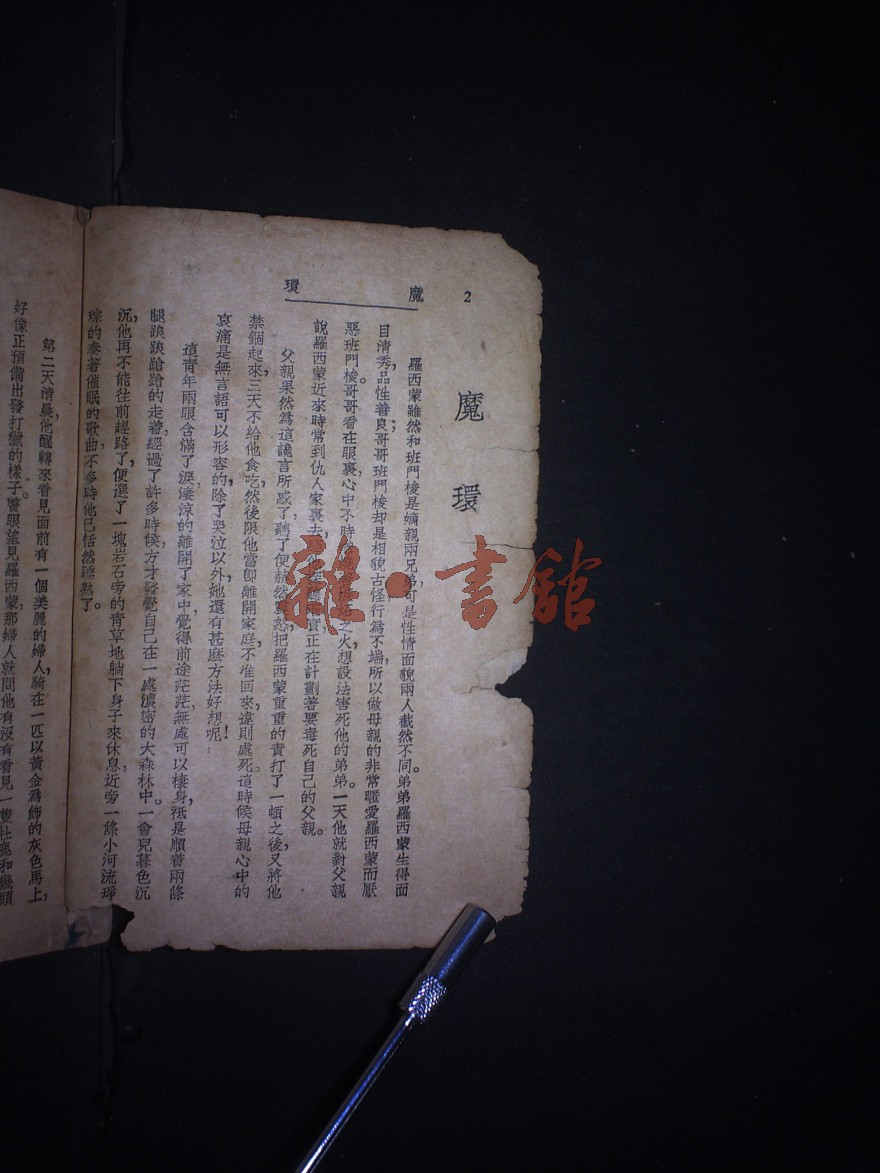 2
魔 環
魔 環
羅西蒙雖然和班門梭是嫡親兩兄弟,可是性情面貌兩人截然不同。弟弟羅西蒙生得面
目清秀,品性善良;哥哥班門梭却是相貌古怪行爲不端,所以做母親的非常曖愛羅西蒙而厭
惡班門梭。哥哥看在眼裏心中不時之火,想設法害死他的弟弟。一天他就對父親
說羅西蒙近來時常到仇人家裏去,實正在計劃著要毒死自己的父親。
父親果然爲這讒言所惑了,聽了便赫然怒,把羅西蒙重重的責打了一頓之後,又將他
禁錮起來,三天不給他食吃,然後限他當卽離開家庭,不准回來,違則處死。這時候母親心中的
哀痛是無言語可以形容的,除了哭泣以外,她還有甚麽方法好想呢!
這青年兩眼含滿了淚,淒涼的離開了家中,覺得前途茫茫,無處可以棲身,祗是順着兩條
腿踉踉蹌蹌的走着,經過了許多時候,方才發覺自己在一處濃密的大森林中。一會兒暮色沉
沉,他再不能往前趕路了,便選了一塊岩石旁的靑草地躺下身子來休息,近旁一條小河流琤
琮的奏著催眠的歌曲,不多時他已恬然睡熟了。
第二天淸晨,他醒轉來看見面前有一個美麗的婦人,騎在一匹以黃金爲飾的灰色馬上,
好像正預備出發打獵的樣子。瞥眼望見羅西蒙,那婦人就問他有沒有看見一隻牡鹿和幾頭
雜·書館